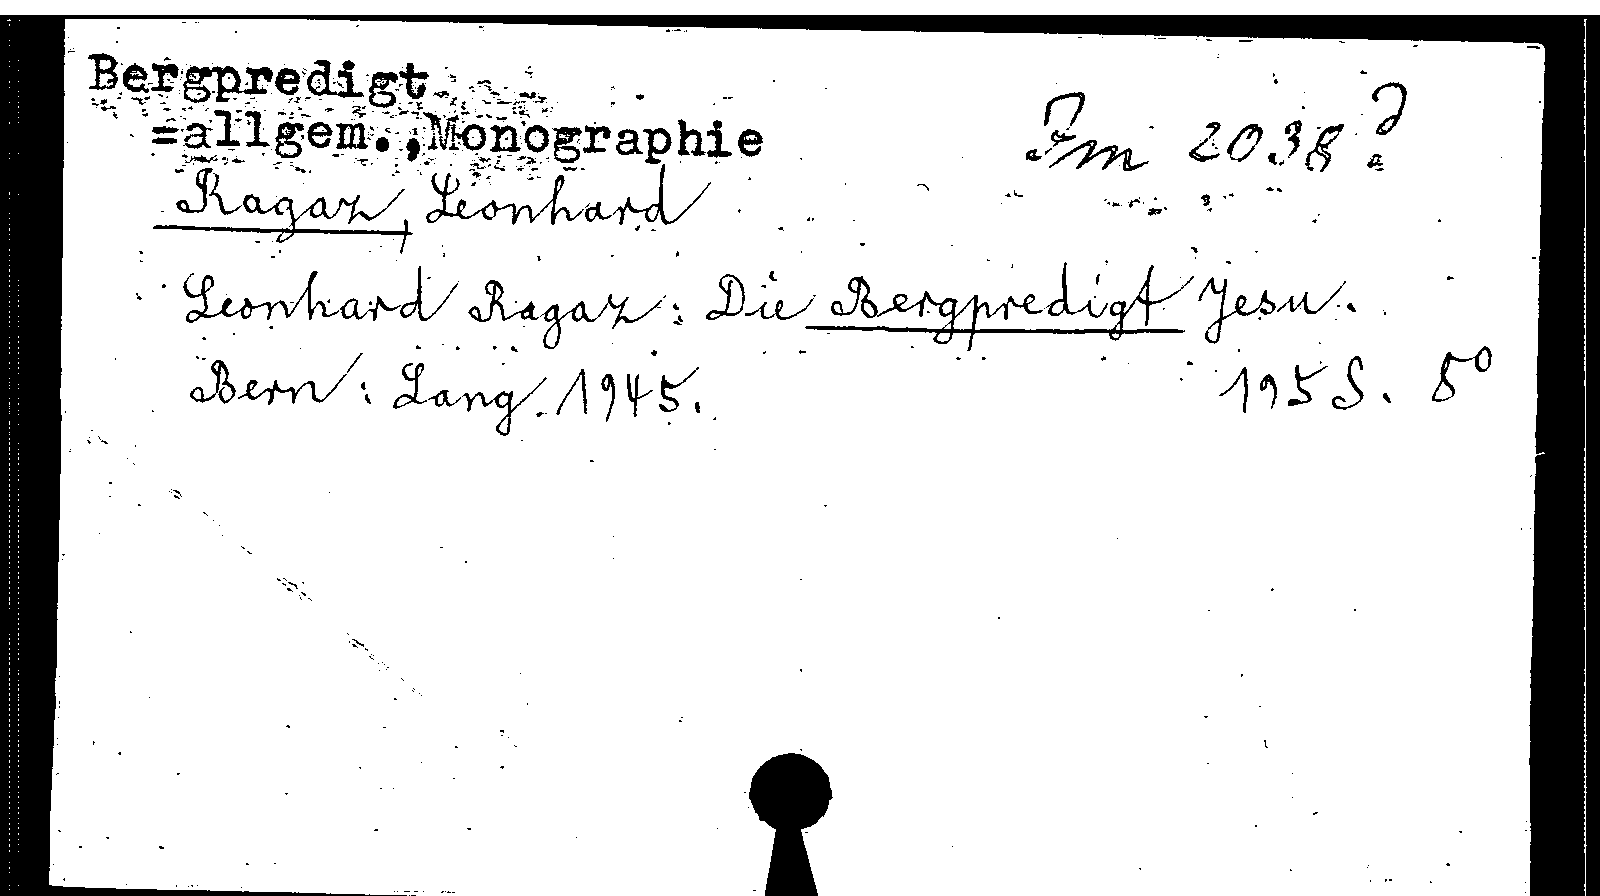 Bergpredigt
=allgem.,Monographie
Fm 2038?
Ragaz, Leonhard
Leonhard Ragaz: Die Bergpredigt Jesu.
Bern: Lang. 1945. 195 S. 8°